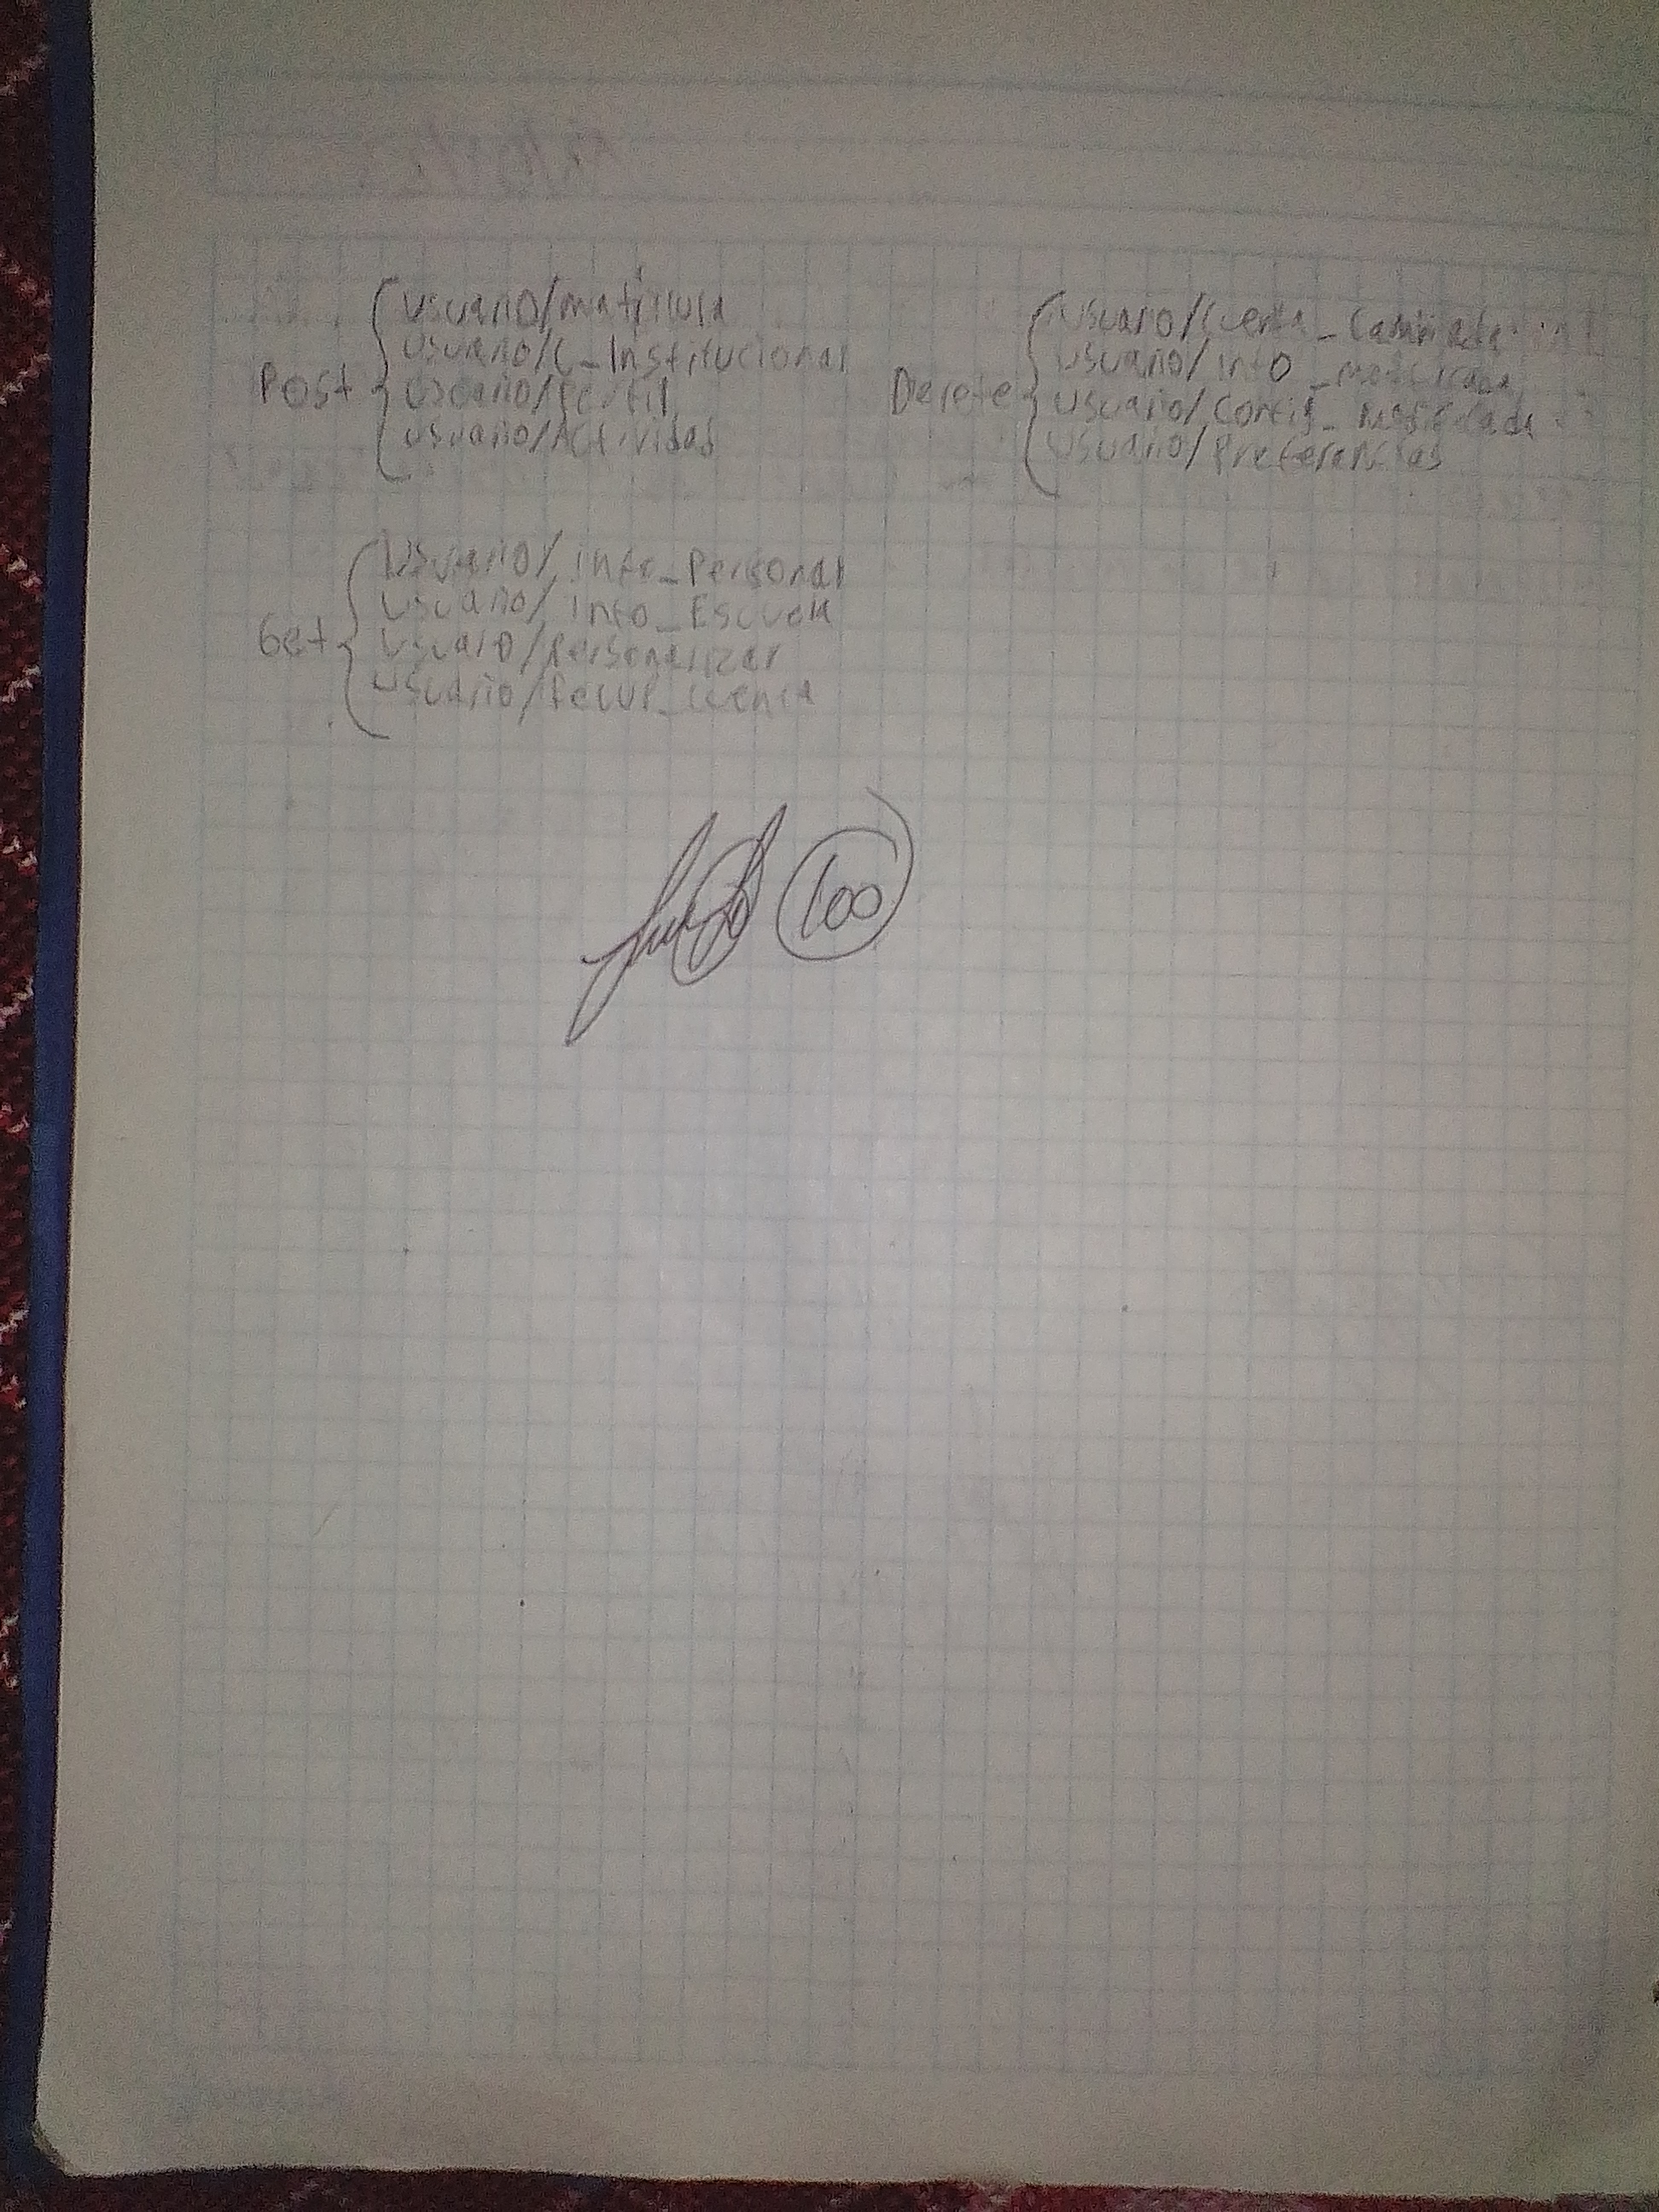 Post
Usuario/matricula
Usuario/C_Institucional
Usuario/Perfil
Usuario/Actividad
Delete
Usuario/Cuenta_
Usuario/info_modificada
Usuario/Config_modificada
Usuario/Preferencias
Get
Usuario/info_Personal
Usuario/info_Escuela
Usuaro/Personalizar
Usuario/recup_cuenta
100